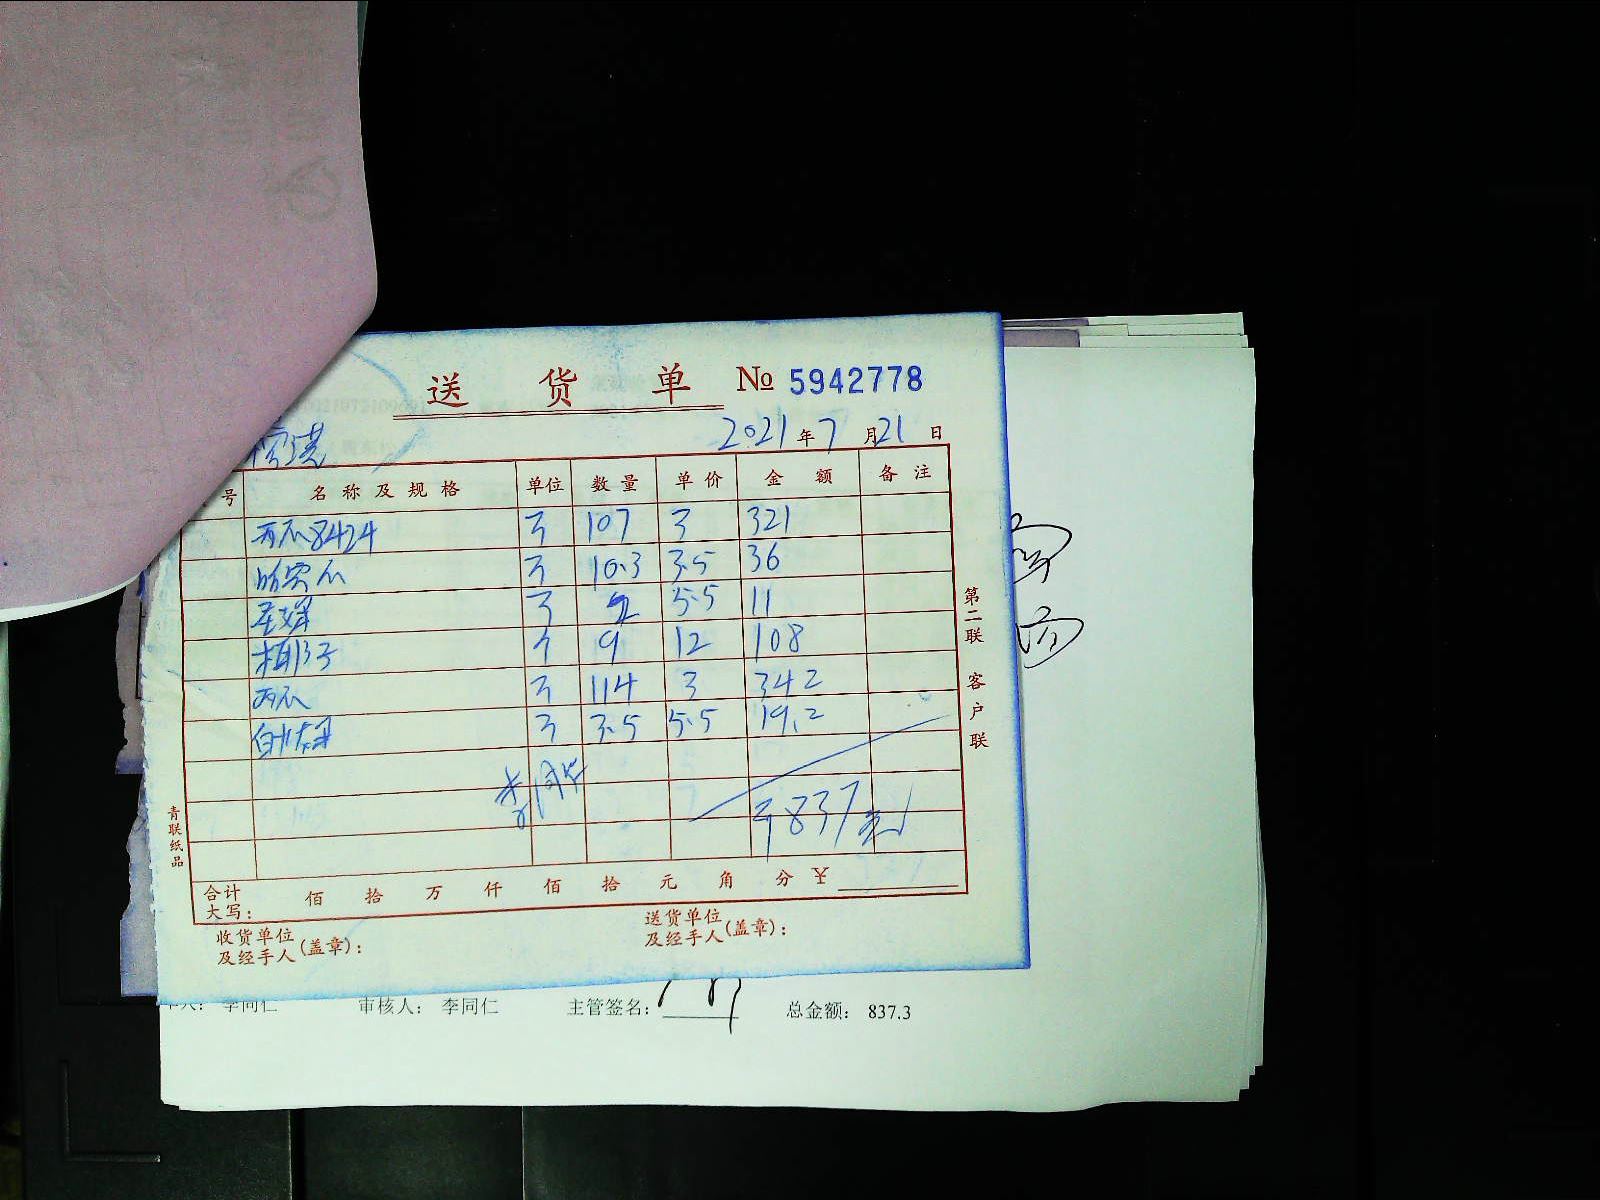 送 货 单 № 5942778
2021 年 7 月 21 日
号 名称及规格 单位 数量 单价 金额 备注
西瓜8424 斤 107 3 321
哈密瓜 斤 10.3 3.5 36
斤 2 5.5 11
椰子 个 9 12 108
西瓜 斤 114 3 342
斤 3.5 5.5 19.2
837元
合计
大写: 佰 拾 万 仟 佰 拾 元 角 分 ¥
收货单位
及经手人(盖章):
送货单位
及经手人(盖章):
第二联 客户联
青联纸品
李同仁 审核人: 李同仁 主管签名: 总金额: 837.3